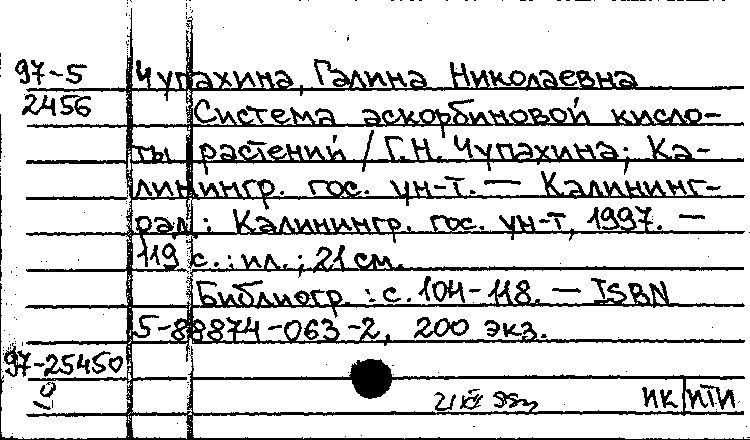 97-5 Чупахина, Галина Николаевна
2456 Система аскорбиновой кисло-
ты растений / Г.Н. Чупахина; Ка-
линингр. гос. ун-т. — Калининг-
рад : Калинингр. гос. ун-т, 1997. —
119 с. : ил. ; 21 см.
Библиогр. : с. 104-118. — ISBN
5-88874-063-2, 200 экз.
97-25450
ИК/ИТИ